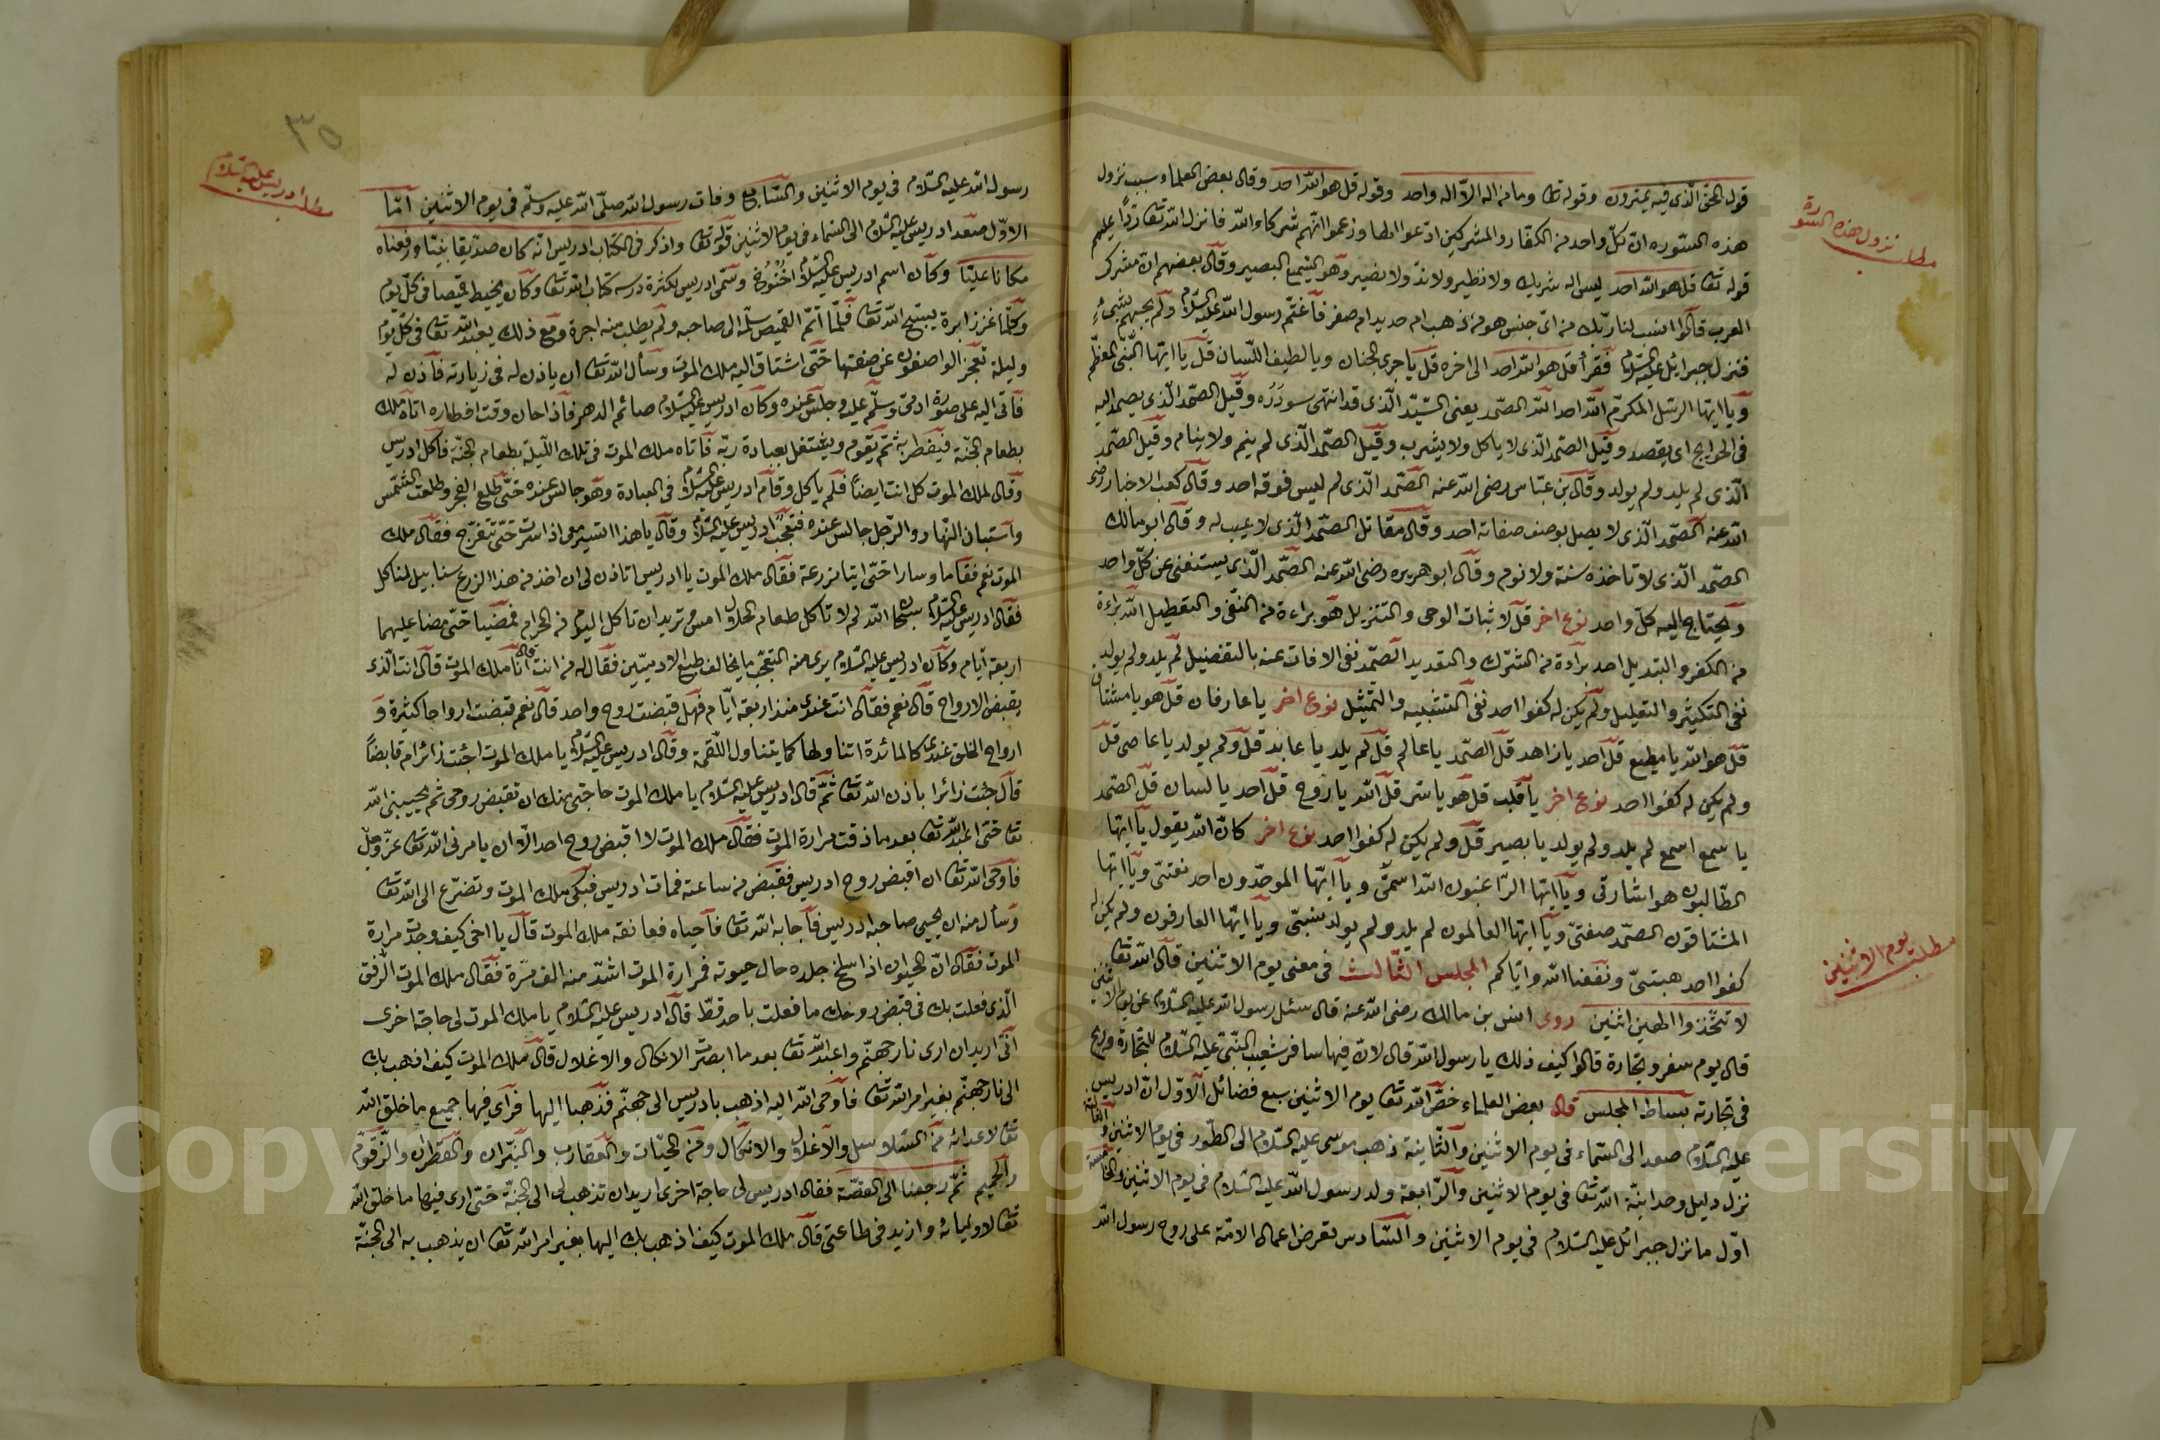 قول الحق الّذى فيه يمترون وقوله تعا وما من اله الّا اله واحد وقوله قل هو اللّه احد وقال بعض العلماء سبب نزول
هذه السّوره انّ كلّ واحد من الكفّار والمشركين ادّعوا وزعموا انّهم شركاء اللّه فانزل اللّه تعا ردّا عليهم
قوله تعا قل هو اللّه احد ليس له شريك ولا نظير ولا ندّ ولا نصير وهو السّميع البصير وقال بعضهم انّ مشرك
العرب قالوا انسب لنا ربّك من اىّ جنس هو من ذهب ام حديد ام صفر فاغتمّ رسول اللّه عليه السّلام ولم يجبهم بشئ
فنزل جبرائل عليه السّلام فقرأ قل هو اللّه احد الى اخره قل يا جرى الجنان ويا لطيف اللّسان قل يا ايّها النّبىّ المعظّم
ويا ايّها الرسل المكرّم اللّه احد اللّه الصّمد يعنى السّيّد الّذى قد انتهى سودره وقيل الصّمد الّذى يصمد اليه
فى الحوايج اى يقصد وقيل الصّمد الّذى لا ياكل ولا يشرب وقيل الصّمد الّذى لم ينم ولا ينام وقيل الصّمد
الّذى لم يلد ولم يولد وقال بن عبّاس رضى اللّه عنه الصّمد الّذى لم ليس فوقه احد وقال كعب الاخبار رضى
اللّه عنه الصّمد الّذى لا يصل بوصف صفاته احد وقال مقاتل الصّمد الّذى لا عيب له وقال ابو مالك
الصّمد الّذى لا تاخذه سنة ولا نوم وقال ابو هريره رضى اللّه عنه الصّمد الّذى يستغنى عن كلّ واحد
ويحتاج اليه كلّ واحد نوع اخر قل لاثبات الوحى والتنزيل هو براءة من النّفى والتعطيل اللّه براءة
من الكفر والتبديل احد براءة من الشّرك والتعديد الصّمد نفى الافات عنه بالتفضيل لم يلد ولم يولد
نفى التكثير والتعليل ولم يكن له كفوا احد نفى التشبيه والتمثيل نوع اخر يا عارفان قل هو يا مشتاق
قل هو اللّه يا مطيع قل احد يا زاهد قل الصّمد يا عالم قل لم يلد يا عابد قل ولم يولد يا عاصى قل
ولم يكن له كفوا احد نوع اخر يا قلب قل هو يا سر قل اللّه يا روح قل احد يا لسان قل الصّمد
يا سمع اسمع لم يلد ولم يولد يا بصير قل ولم يكن له كفوا احد نوع اخر كانّ اللّه يقول يا ايّها
الطّالبون هو اشارتى ويا ايّها الرّاغبون اللّه اسمىّ ويا ايّها الموحّدون احد نعتىّ ويا ايّها
المشتاقون الصّمد صفتىّ ويا ايّها العالمون لم يلد ولم يولد ويا ايّها العارفون ولم يكن له
كفوا احد هبتىّ ونفعنا اللّه وايّاكم المجلس الثّالث فى معنى يوم الاثنين قال اللّه تعا
لا تتّخذوا الهين اثنين روى انس بن مالك رضى اللّه عنه قال سئل رسول اللّه عليه السّلام عن يوم الاثنين
قال يوم سفر وتجارة قالوا كيف ذلك يا رسول اللّه قال لانّ فيها سافر شعيب النّبىّ عليه السّلام للتجارة وربح
فى تجارته بساط المجلس قال بعض العلماء خصّ اللّه تعا يوم الاثنين سبع فضائل الاوّل انّ ادريس
عليه السّلام صعد الى السّماء فى يوم الاثنين والثّانية ذهب موسى عليه السّلام الى الطّور فى يوم الاثنين والثّالثة
نزل دليل وحدانيّة اللّه تعا فى يوم الاثنين والرّابعة ولد رسول اللّه عليه السّلام فى يوم الاثنين والخامسة
اوّل ما نزل جبرائل عليه السّلام فى يوم الاثنين والسّادس تعرض اعمال الامّة على روح رسول اللّه
مطلب نزول هذه السّورة
مطلب يوم الاثنين
رسول اللّه عليه السّلام فى يوم الاثنين والسّابع وفات رسول اللّه صلّى اللّه عليه وسلّم فى يوم الاثنين امّا
الاوّل صعد ادريس عليه السّلام الى السّماء فى يوم الاثنين قوله تعا واذكر فى الكتاب ادريس انّه كان صدّيقا نبيّا ورفعناه
مكانا عليّا وكان اسم ادريس عليه السّلام اخنوخ وسمّى ادريس لكثرة درسه كتاب اللّه تعا وكان يخيط قميصا فى كلّ يوم
وكلّما غرز ابرة يسبّح اللّه تعا فلمّا اتمّ القميص سلّمه الى صاحبه ولم يطلب منه اجرة ومع ذلك يعبد اللّه تعا فى كلّ يوم
وليلة تعجز الواصفون عن صفتها حتّى اشتاق اليه ملك الموت وسأل اللّه تعا ان ياذن له فى زيارته فاذن له
فاتى اليه على صورة ادمىّ وسلّم عليه وجلس عنده وكان ادريس عليه السّلام صائم الدهر فاذا حان وقت افطاره اتاه ملك
بطعام الجنّة فيفطر به ثمّ يقوم ويشتغل بعبادة ربّه فاتاه ملك الموت فى تلك اللّيلة بطعام الجنّة فاكل ادريس
وقال لملك الموت كل انت ايضاً فلم ياكل وقام ادريس عليه السّلام فى العبادة وهو جالس عنده حتّى طلع الفجر وطلعت الشّمس
واستبان النّهار والرّجل جالس عنده فتعجّب ادريس عليه السّلام وقال يا هذا اتسير معى اذا سرت حتّى تتفرّج فقال ملك
الموت نعم فقاما وسارا حتّى اتيا مزرعة فقال ملك الموت يا ادريس اتاذن لى ان اخذ من هذا الزرع سنابيل لناكل
فقال ادريس عليه السّلام سبحان اللّه لم لا تاكل طعام الحلال امس وتريد ان تاكل اليوم من الحرام فمضيا حتّى مضا عليهما
اربعة ايّام وكان ادريس عليه السّلام يرى منه التعجّب ما يخالف طبع الادميّين فقال له من انت قال انا ملك الموت قال انت الّذى
يقبض الارواح قال نعم فقال انت عندى منذ اربعة ايّام فهل قبضت روح واحد قال نعم قبضت ارواحا كثيرة و
ارواح الخلق عندى كالمائدة اتناولها كما يتناول اللّقمة وقال ادريس عليه السّلام يا ملك الموت اجئت زائرا ام قابضاً
قال جئت زائرا باذن اللّه تعا ثمّ قال ادريس عليه السّلام يا ملك الموت حاجتى منك ان تقبض روحى ثم يحيينى اللّه
تعا حتّى اعبد اللّه تعا بعد ما ذقت مرارة الموت فقال ملك الموت لا اقبض روح احد الّا ان يامرنى اللّه تعا عزّ وجلّ
فاوحى اللّه تعا ان اقبض روح ادريس فقبض من ساعته فمات ادريس فبكى ملك الموت وتضرّع الى اللّه تعا
وسأل منه ان يحيى صاحبه ادريس فاجابه اللّه تعا فاحياه فعانقه ملك الموت قال يا اخى كيف وجدت مرارة
الموت فقال انّ الحيوان اذا سلخ جلده حال حيوته فمرارة الموت اشدّ منه الف مرّة فقال ملك الموت الرّفق
الّذى فعلت بك فى قبض روحك ما فعلت باحد قطّ قال ادريس عليه السّلام يا ملك الموت لى حاجة اخرى
انّى اريد ان ارى نار جهنّم واعبد اللّه تعا بعد ما ابصرت الانكال والاغلال قال ملك الموت كيف اذهب بك
الى نار جهنّم بغير امر اللّه تعا فاوحى اللّه اليه اذهب بادريس الى جهنّم فذهبا اليها فرأى فيها جميع ما خلق اللّه
تعا لاعدائه من السّلاسل والاغلال والانكال ومن الحيّات والعقارب والنّيران والقطران والزّقّوم
والحميم ثمّ رجعنا الى القصّة فقال ادريس لى حاجة اخرى اريد ان تذهب بى الى الجنّة حتّى ارى فيها ما خلق اللّه
تعا لاوليائه وازيد فى طاعتى قال ملك الموت كيف اذهب بك اليها بغير امر اللّه تعا ان يذهب به الى الجنّة
مطلب ادريس عليه السّلام
٣٥